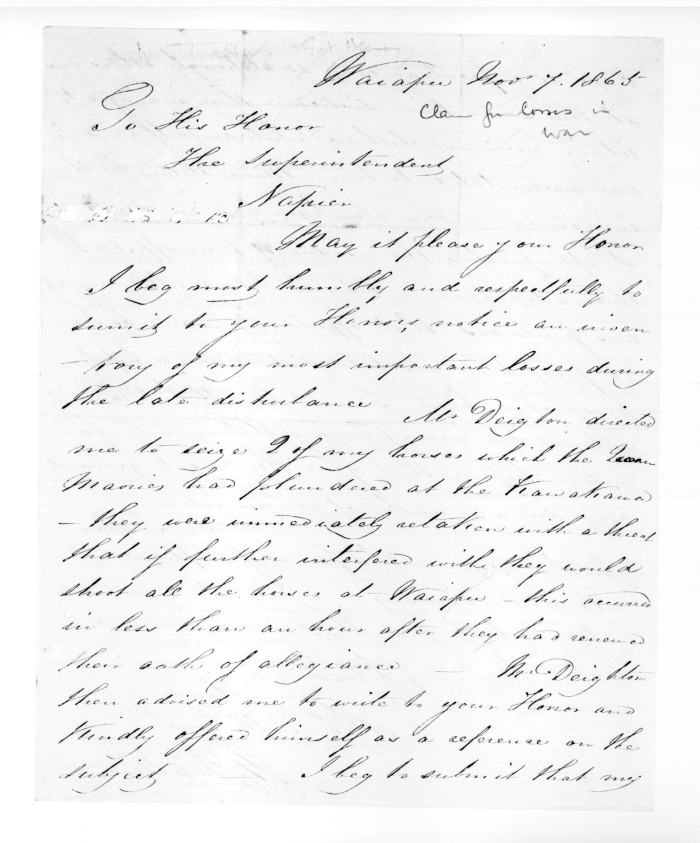 Waiapu Novr 7. 1865
Claim for losses in
war
To His Honor
The Superintendent
Napier
May it please your Honor
I beg most humbly and respectfully to
sumit to your Honors, notice an inven
-tory of my most important losses during
the late disturbance Mr Deigton directed
me to seize 2 of my horses which the
Maories had plundered at the Kawakawa
- they were immediately retaken with a threat
that if further interfered with they would
shoot all the horses at Waiapu - this occured
in less than an hour after they had renewed
their oath of allegiance - Mr Deighton
then advised me to write to your Honor and
kindly offered himself as a reference on the
subject - I beg to submit that my